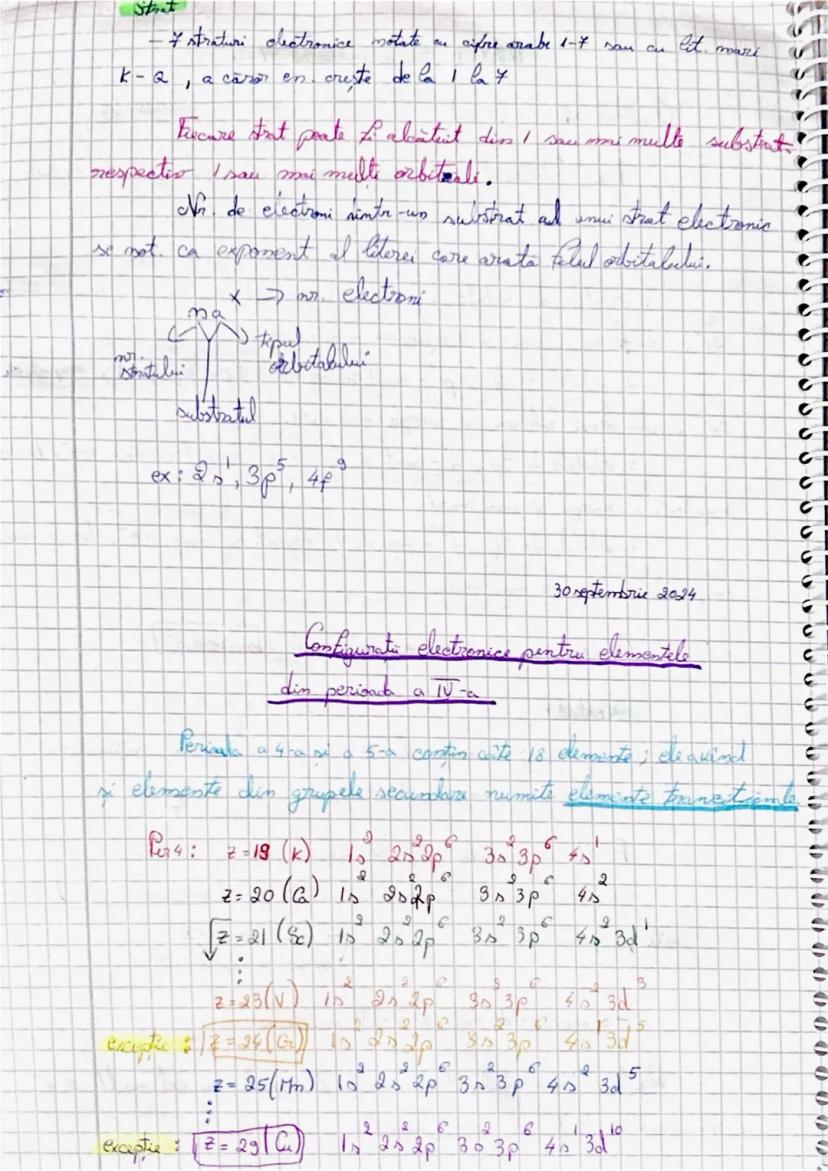 Strat
- 7 straturi electronice notate cu cifre arabe 1-7 sau cu lit. mari
K-Q, a căror en. crește de la 1 la 7
Fiecare strat poate fi alcătuit din 1 sau mai multe substrat.
respectiv 1 sau mai multe orbitali.
Nr. de electroni dintr-un substrat al unui strat electronic
se not. ca exponent al literei care arată felul orbitalului.
na^x → nr. electroni
nr. stratului
tipul orbitalului
substratul
ex: 2s¹, 3p⁵, 4f⁹
30 septembrie 2024
Configurații electronice pentru elementele
din perioada a IV-a
Perioada a 4-a și a 5-a conțin câte 18 elemente; ele având
și elemente din grupele secundare numite elemente tranziționale
Per 4: z=19 (K) 1s² 2s²2p⁶ 3s²3p⁶ 4s¹
z=20 (Ca) 1s² 2s²2p⁶ 3s²3p⁶ 4s²
z=21 (Sc) 1s² 2s²2p⁶ 3s²3p⁶ 4s²3d¹
⋮
z=23(V) 1s² 2s²2p⁶ 3s²3p⁶ 4s²3d³
excepție: z=24(Cr) 1s² 2s²2p⁶ 3s²3p⁶ 4s¹3d⁵
z=25(Mn) 1s² 2s²2p⁶ 3s²3p⁶ 4s² 3d⁵
⋮
excepție: z=29(Cu) 1s² 2s²2p⁶ 3s²3p⁶ 4s¹3d¹⁰